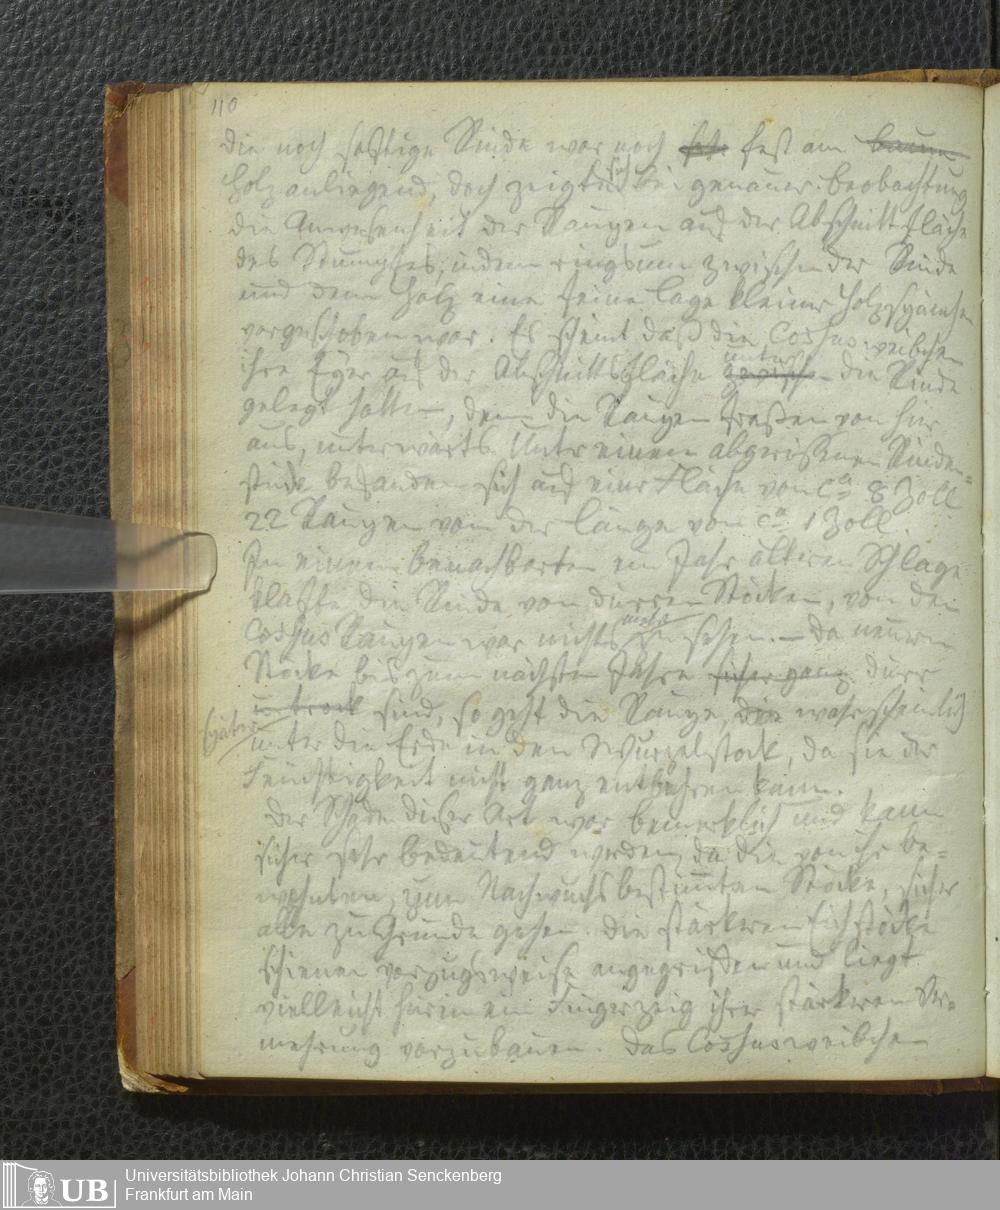 110
die noch saftige Rinde war noch fest am
Holz anliegend, doch zeigte sich bei genauer Beobachtung
die Anwesenheit der Raupen auf der Abschnittsfläche
des Stumpfes, indem ringsum zwischen der Rinde
und dem Holz eine feine Lage kleiner Holzspänchen
vorgeschoben war. Es scheint daß die Cossus weibchen
ihre Eyer auf der Abschnittsfläche unter die Rinde
gelegt hatten, denn die Raupen fraßen von hier
aus, unterwärts. Unter einem abgerissenen Rinden=
stück befanden sich auf einer Fläche von ca 8 Zoll
22 Raupen von der Länge von ca 1 Zoll.
In einem benachbarten ein Jahr älteren Schlage
klaffte die Rinde von dürren Stöcken, von den
Cossus Raupen war nichts mehr zu sehen. – Da neuere
Stöcke bis zum nächsten Jahre dürr
sind, so geht die Raupe, wahrscheinlich
später
unter die Erde in den Wurzelstock, da sie der
Feuchtigkeit nicht ganz entbehren kann.
Der Schaden dieser Art war bemerklich und kann
sicher sehr bedeutend werden, da die von ihr be=
wohnten, zum Nachwuchs bestimmten Stöcke, sicher
alle zu Grunde gehen. Die stärkeren Eichstöcke
schienen vorzugsweise angegriffen und liegt
vielleicht hierin ein Fingerzeig ihrer stärkeren Ver=
mehrung vorzubauen. Das Cossusweibchen
UB
Universitätsbibliothek Johann Christian Senckenberg
Frankfurt am Main